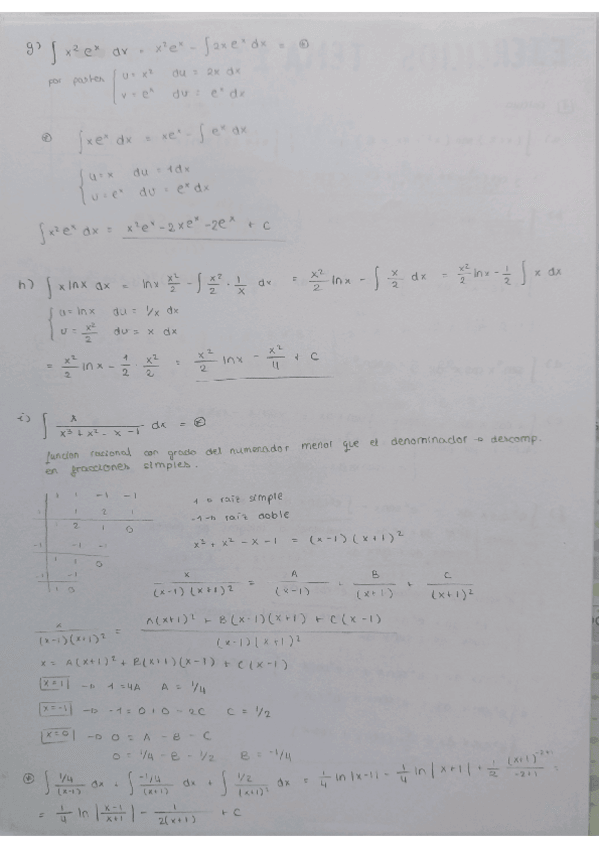 g) ∫ x² eˣ dx = x²eˣ - ∫ 2x eˣ dx = ⊛
por partes { u = x² du = 2x dx
v = eˣ dv = eˣ dx
⊛ ∫ x eˣ dx = xeˣ - ∫ eˣ dx
{ u = x du = 1dx
v = eˣ dv = eˣ dx
∫ x²eˣ dx = x²eˣ - 2xeˣ - 2eˣ + C
h) ∫ x lnx dx = lnx x²/2 - ∫ x²/2 · 1/x dx = x²/2 lnx - ∫ x/2 dx = x²/2 lnx - 1/2 ∫ x dx
{ u = lnx du = 1/x dx
v = x²/2 dv = x dx
= x²/2 lnx - 1/2 · x²/2 = x²/2 lnx - x²/4 + C
i) ∫ x/(x³ + x² - x - 1) dx = ⊛
función racional con grado del numerador menor que el denominador → descomp.
en fracciones simples.
1 1 -1 -1
1 1 2 1
1 2 1 0
-1 -1 -1
1 1 0
-1 -1
1 0
1 → raíz simple
-1 → raíz doble
x³ + x² - x - 1 = (x-1)(x+1)²
x/((x-1)(x+1)²) = A/(x-1) + B/(x+1) + C/(x+1)²
x/((x-1)(x+1)²) = (A(x+1)² + B(x-1)(x+1) + C(x-1))/((x-1)(x+1)²)
x = A(x+1)² + B(x+1)(x-1) + C(x-1)
x=1 → 1 = 4A A = 1/4
x=-1 → -1 = 0 + 0 - 2C C = 1/2
x=0 → 0 = A - B - C
0 = 1/4 - B - 1/2 B = -1/4
⊛ ∫ (1/4)/(x-1) dx + ∫ (-1/4)/(x+1) dx + ∫ (1/2)/(x+1)² dx = 1/4 ln|x-1| - 1/4 ln|x+1| + 1/2 (x+1)⁻²⁺¹/(-2+1) =
= 1/4 ln|(x-1)/(x+1)| - 1/(2(x+1)) + C